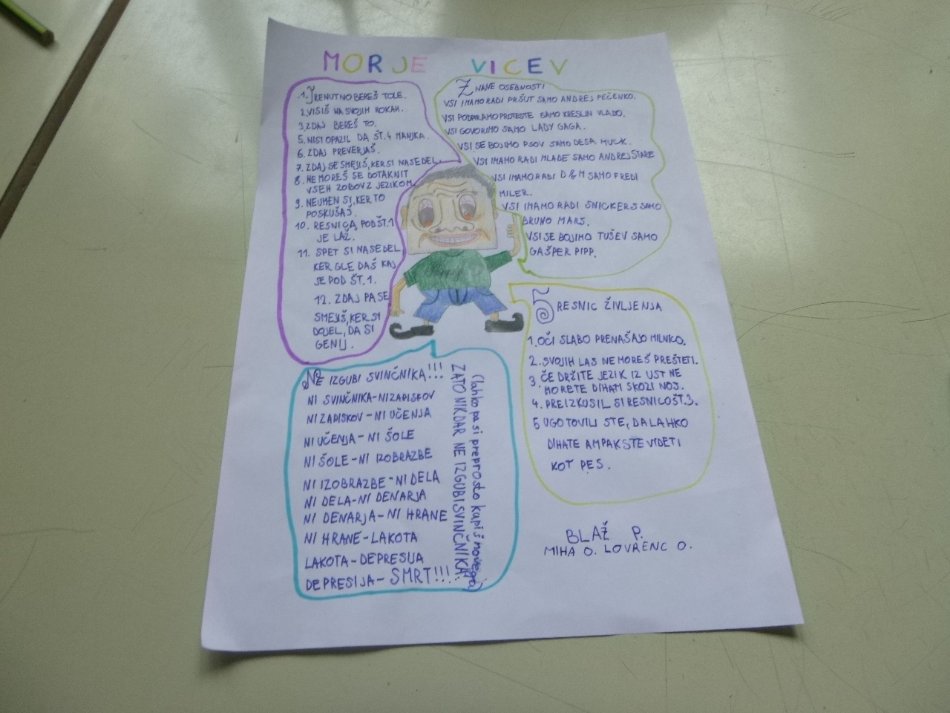 MORJE VICEV
1. TRENUTNO BEREŠ TOLE.
2. VISIŠ NA SVOJIH ROKAH.
3. ZDAJ BEREŠ TO.
5. NISI OPAZIL DA ŠT. 4 MANJKA.
6. ZDAJ PREVERJAŠ.
7. ZDAJ SE SMEJIŠ, KER SI NASEDEL.
8. NE MOREŠ SE DOTAKNIT
VSEH ZOBOV Z JEZIKOM.
9. NEUMEN SI, KER TO
POSKUŠAŠ.
10. RESNICA POD ŠT. 1
JE LAŽ.
11. SPET SI NASEDEL
KER GLEDAŠ KAJ
JE POD ŠT. 1.
12. ZDAJ PA SE
SMEJIŠ, KER SI
DOJEL, DA SI
GENIJ.
ZNANE OSEBNOSTI
VSI IMAMO RADI PRŠUT SAMO ANDREJ PEČENKO.
VSI PODPIRAMO PROTESTE SAMO KRESLIN VLADO.
VSI GOVORIMO SAMO LADY GAGA.
VSI SE BOJIMO PSOV SAMO DESA MUCK.
VSI IMAMO RADI MLADE SAMO ANDREJ STARE
VSI IMAMO RADI D&M SAMO FREDI
MILER.
VSI IMAMO RADI SNICKERS SAMO
BRUNO MARS.
VSI SE BOJIMO TUŠEV SAMO
GAŠPER PIPP.
5 RESNIC ŽIVLJENJA
1. OČI SLABO PRENAŠAJO MILNICO.
2. SVOJIH LAS NE MOREŠ PREŠTETI.
3. ČE DRŽITE JEZIK IZ UST NE
MORETE DIHAM SKOZI NOS.
4. PREIZKUSIL SI RESNICO ŠT. 3.
5 UGOTOVILI STE, DA LAHKO
DIHATE AMPAK STE VIDETI
KOT PES.
NE IZGUBI SVINČNIKA!!!
NI SVINČNIKA-NI ZAPISKOV
NI ZAPISKOV - NI UČENJA
NI UČENJA - NI ŠOLE
NI ŠOLE - NI IZOBRAZBE
NI IZOBRAZBE - NI DELA
NI DELA - NI DENARJA
NI DENARJA - NI HRANE
NI HRANE - LAKOTA
LAKOTA - DEPRESIJA
DEPRESIJA - SMRT!!!
ZATO NIKDAR NE IZGUBI SVINČNIKA!
(lahko pa si preprosto kupiš novega)
BLAŽ P.
MIHA O. LOVRENC O.